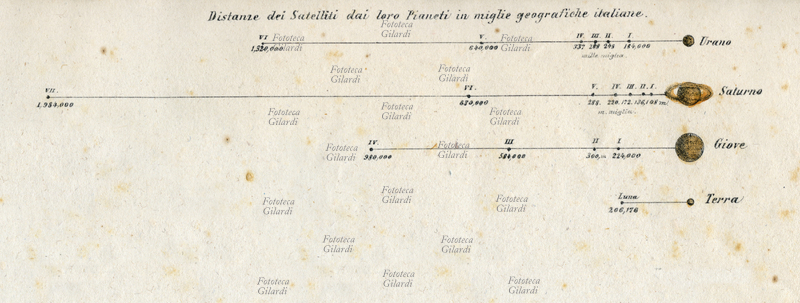 Distanze dei Satelliti dai loro Pianeti in miglie geografiche italiane.
VI V. IV. III. II. I. Urano
1,520,000 640,000 337 288 248 184,000
mille miglia.
VII. VI. V. IV. III. II. I. Saturno
1,984,000 680,000 288. 220. 172. 136. 108 m.
m. miglia.
IV III II I Giove
980,000 584,000 300,m 224,000
Luna Terra
206,176
Fototeca
Gilardi
Fototeca
Gilardi
Fototeca
Gilardi
Fototeca
Gilardi
Fototeca
Gilardi
Fototeca
Gilardi
Fototeca
Gilardi
Fototeca
Gilardi
Fototeca
Gilardi
Fototeca
Gilardi
Fototeca
Gilardi
Fototeca
Gilardi
Fototeca
Gilardi
Fototeca
Gilardi
Fototeca
Gilardi
Fototeca
Gilardi
Fototeca
Gilardi
Fototeca
Gilardi